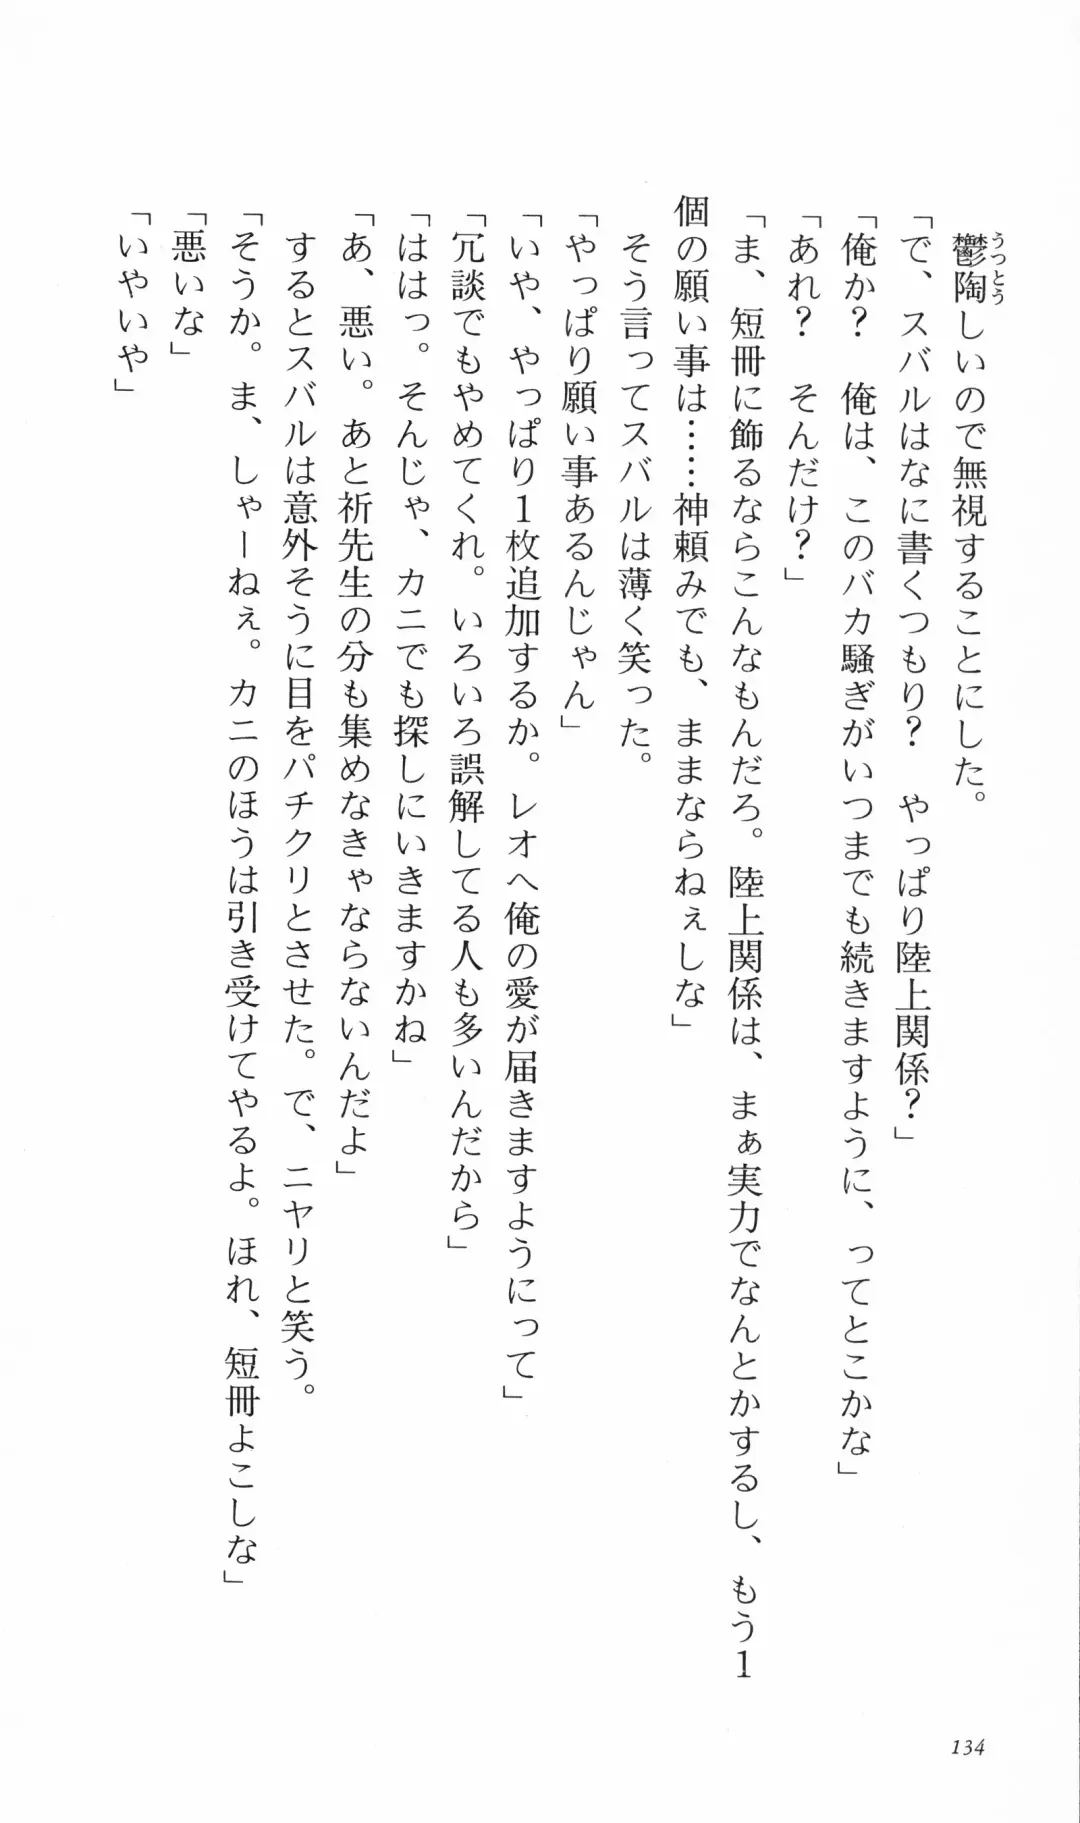 鬱陶しいので無視することにした。
「で、スバルはなに書くつもり？　やっぱり陸上関係？」
「俺か？　俺は、このバカ騒ぎがいつまでも続きますように、ってとこかな」
「あれ？　そんだけ？」
「ま、短冊に飾るならこんなもんだろ。陸上関係は、まぁ実力でなんとかするし、もう１
個の願い事は……神頼みでも、ままならねぇしな」
そう言ってスバルは薄く笑った。
「やっぱり願い事あるんじゃん」
「いや、やっぱり１枚追加するか。レオへ俺の愛が届きますようにって」
「冗談でもやめてくれ。いろいろ誤解してる人も多いんだから」
「ははっ。そんじゃ、カニでも探しにいきますかね」
「あ、悪い。あと祈先生の分も集めなきゃならないんだよ」
するとスバルは意外そうに目をパチクリとさせた。で、ニヤリと笑う。
「そうか。ま、しゃーねぇ。カニのほうは引き受けてやるよ。ほれ、短冊よこしな」
「悪いな」
「いやいや」
うっとう
134